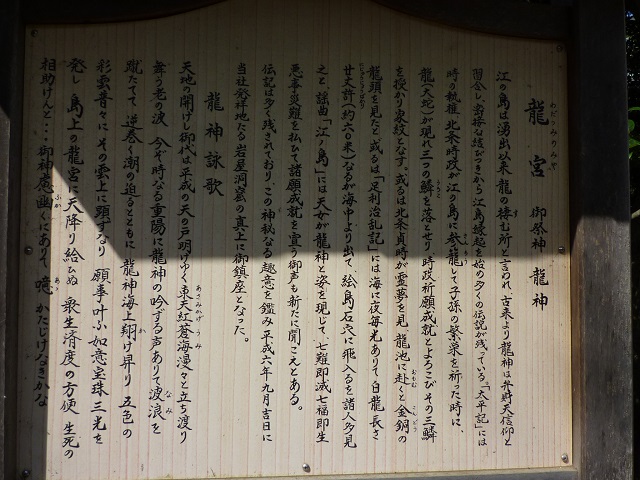 龍宮 御祭神 龍神
わだつみのみや
江の島は湧出以来龍の棲む所と言われ、古来より龍神は弁財天信仰と
習合し、密接な結びつきから江島縁起を始め多くの伝説が残っている。「太平記」には
時の執権、北条時政が江の島に参籠して子孫の繁栄を祈った時に、
龍(大蛇)が現れ三つの鱗を落とせり時政祈願成就とよろこびその三鱗
を授かり家紋となす、或るは北条貞時が霊夢を見、龍池に赴くと金銅の
龍頭を見たと、或るは「足利治乱記」には海に夜毎光ありて白龍長さ
廿丈許(約六〇米)なるが海中より出て、絵島石穴に飛入るを諸人多見
之と、謡曲「江ノ島」には天女が龍神と姿を現じて、七難即滅七福即生
悪事災難を払ひて諸願成就を宣う御声も新たに聞こえとある。
伝記は多く残されており、この神秘なる趣意を鑑み平成六年九月吉日に
当社発祥地たる岩屋洞窟の真上に御鎮座となった。
龍神詠歌
天地の開けし御代は平成の天の戸明けゆく東天紅蒼海漫々と立ち渡り
舞う老の波 今ぞ時なる重陽に龍神の吟ずる声ありて波浪を
蹴たてて 逆巻く潮の迫るとともに 龍神海上翔け昇り 五色の
彩雲沓々に その雲上に顕するなり 願事叶ふ如意宝珠三光を
発し 島上の龍宮に天降り給ひぬ 衆生済度の方便 生死の
相助けんと…御神慮幽くにありて 噫 かたじけなきかな